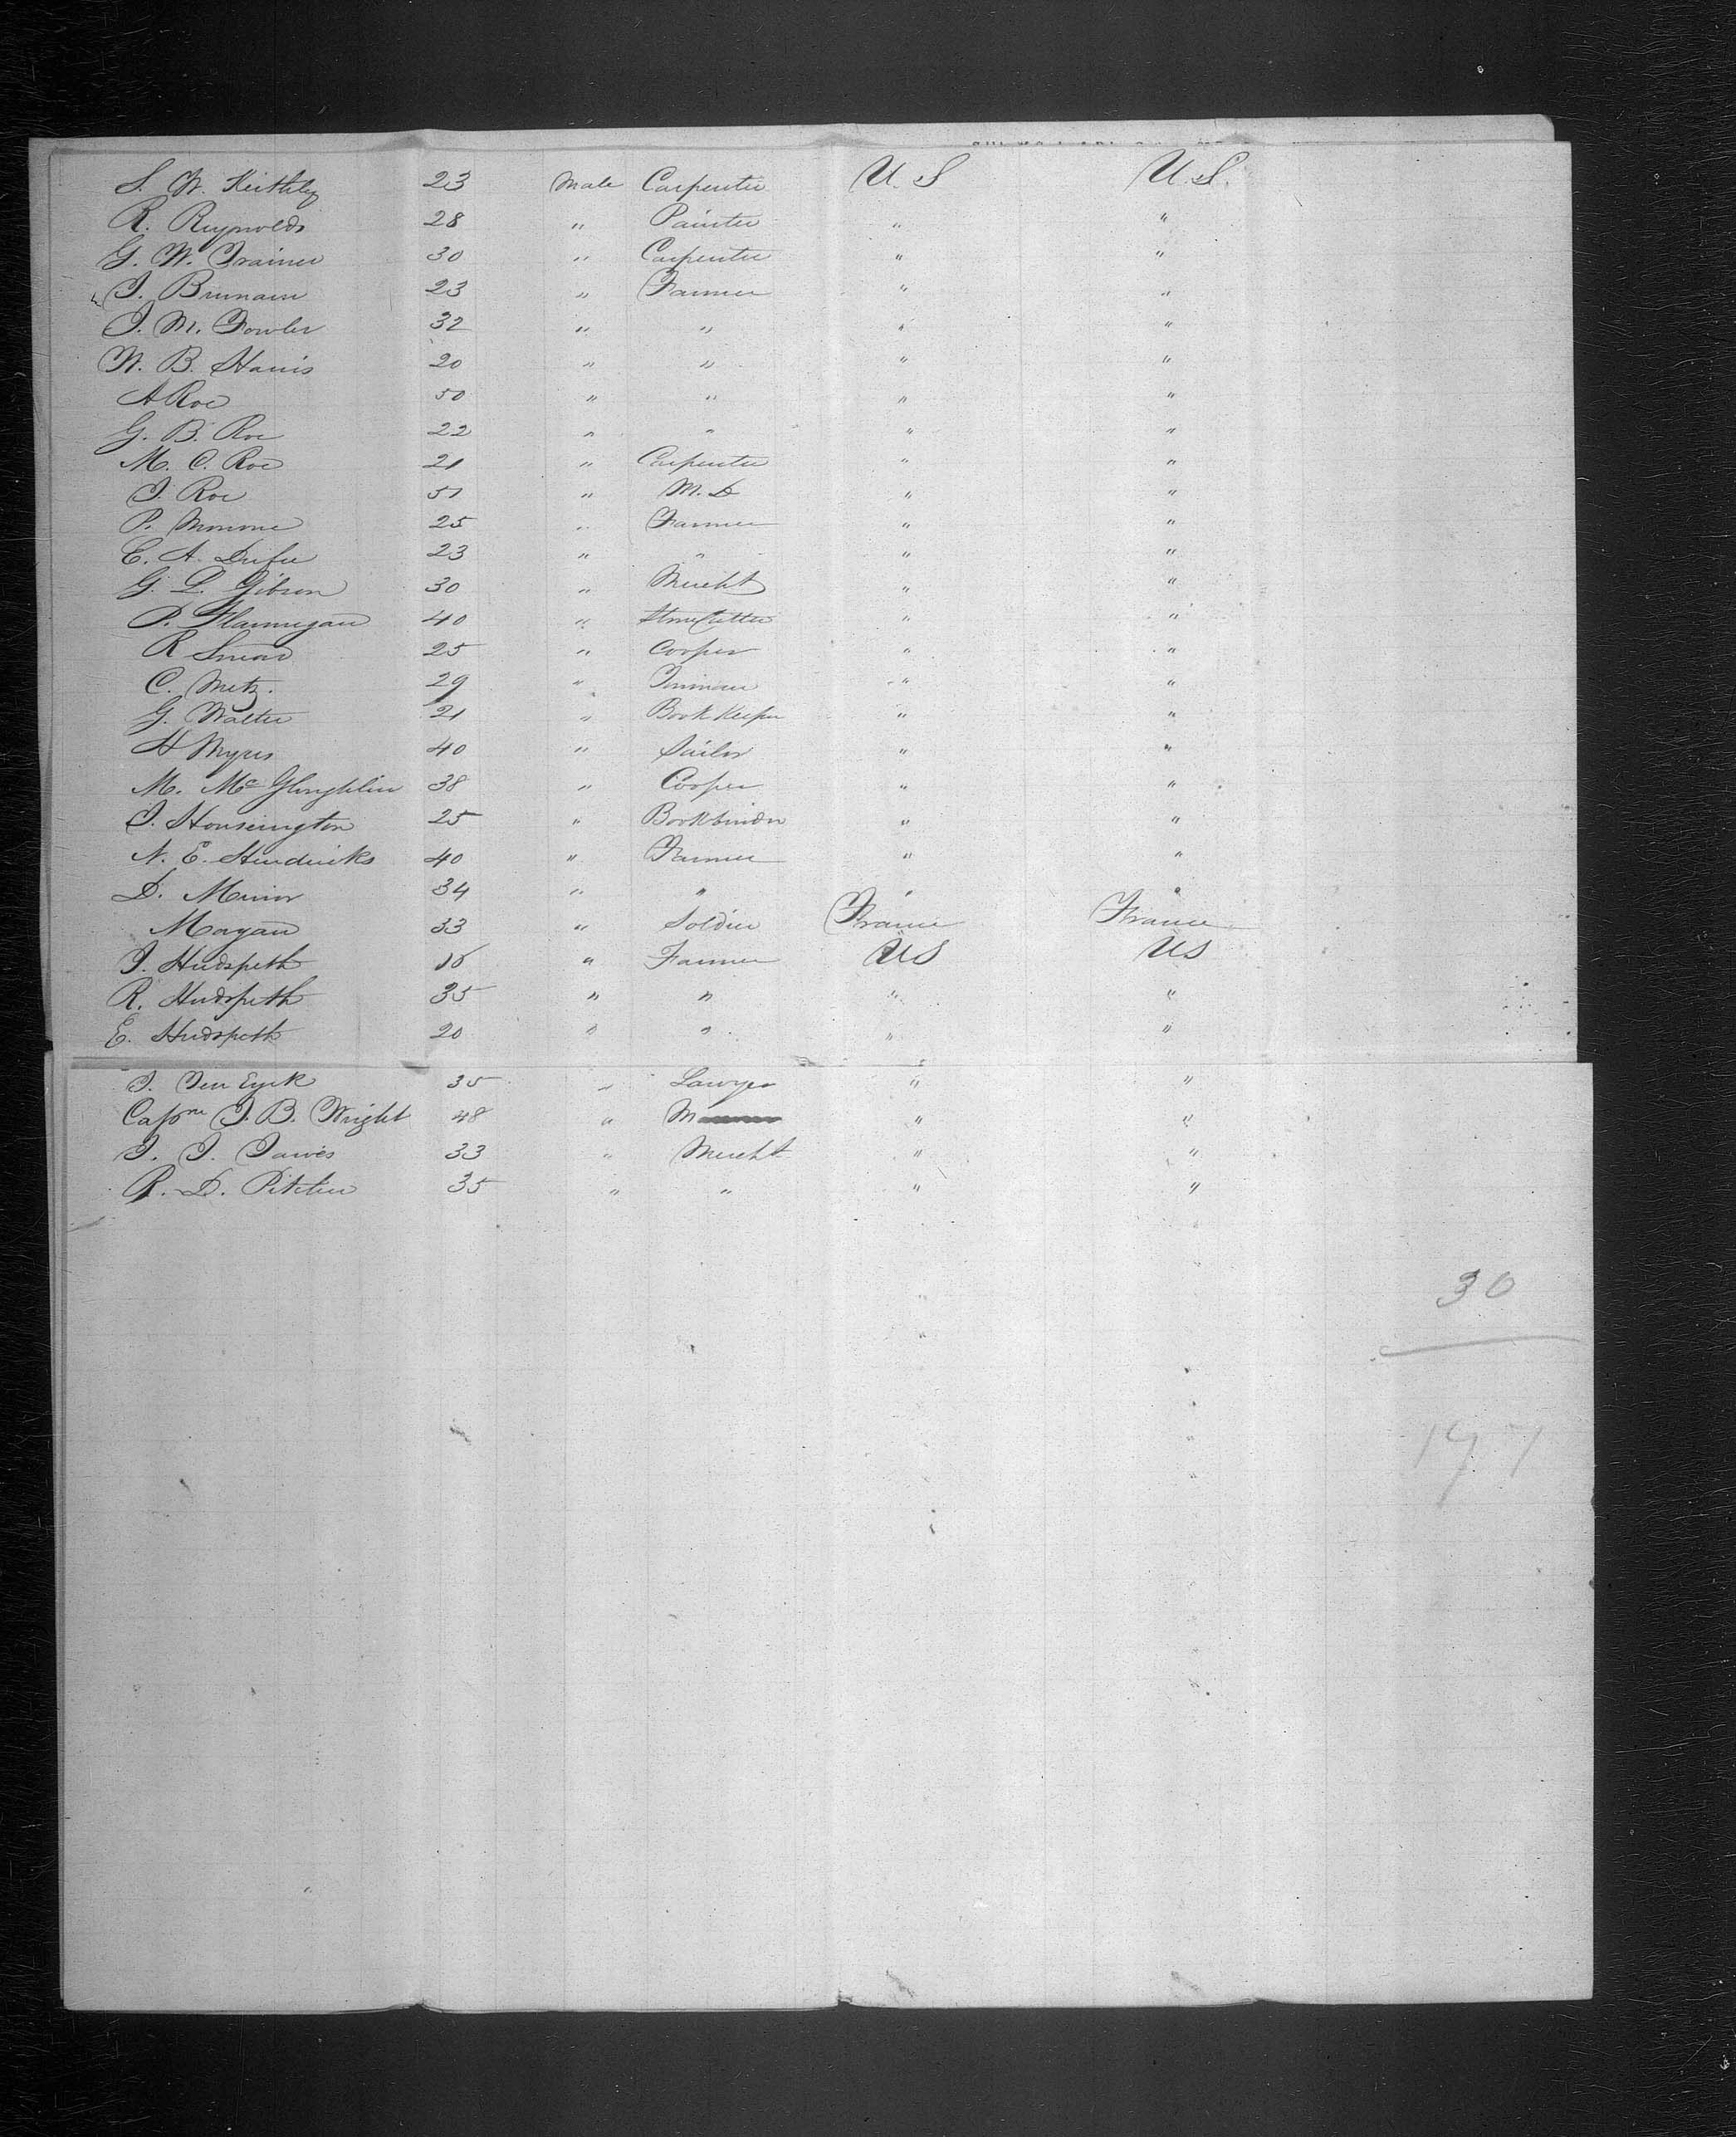 S. W. Keithley 23 Male Carpenter U. S U. S.
R. Reynolds 28 " Painter " "
G. W. Trainer 30 " Carpenter " "
J. 23 " Farmer " "
J. M. Fowler 32 " " " "
W. B. Harris 20 " " " "
A Roe 50 " " " "
G. B. Roe 22 " " " "
M. C. Roe 21 " Carpenter " "
J. Roe 51 " M. D " "
P. 25 " Farmer " "
C. A. 23 " " " "
G. L. Gibson 30 " Mercht " "
P. Flannegan 40 " Stone Cutter " "
R 25 " Cooper " "
C. Metz. 29 " Tinman " "
G. Walter 21 " Book Keeper " "
H Myres 40 " Sailor " "
M. Mc Gloughlin 38 " Cooper " "
J. Housington 25 " Bookbinder " "
N. E. Hendricks 40 " Farmer " "
D. Minor 34 " " " "
Mayan 33 " Soldier France France
J. Hudspeth 16 " Farmer US US
R. Hudspeth 35 " " " "
E. Hudspeth 20 " " " "
J. Ten Eyck 35 " Lawyer " "
J. B. Wright 48 " M " "
J. J. 33 " Mercht " "
R. D. 35 " " " "
30